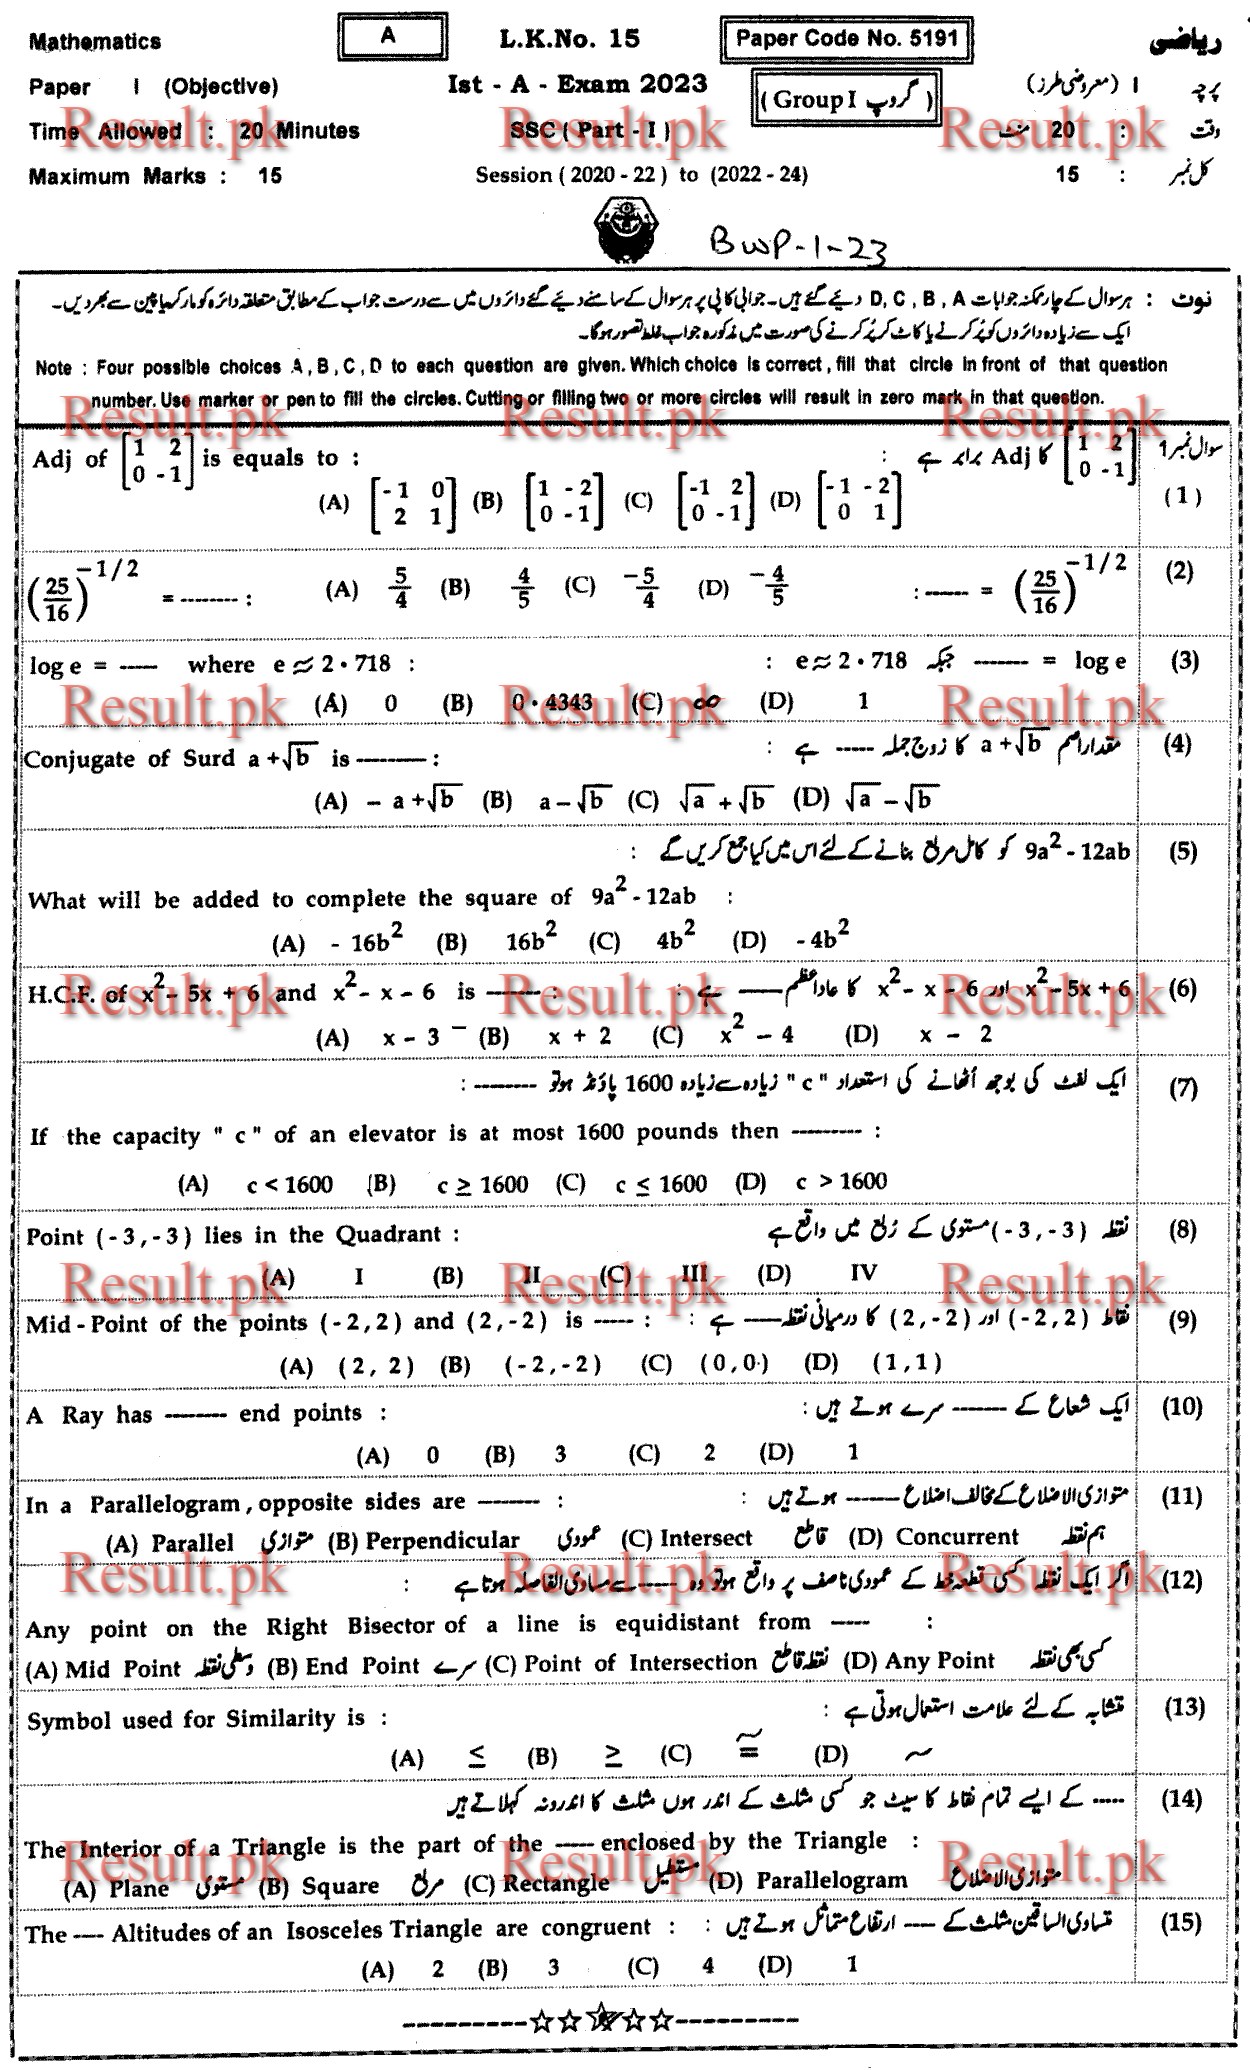 Mathematics A L.K.No. 15 Paper Code No. 5191 ریاضی
Paper I (Objective) Ist - A - Exam 2023 (Group I گروپ) پرچہ I (معروضی طرز)
Time Allowed : 20 Minutes SSC ( Part - I ) وقت : 20 منٹ
Maximum Marks : 15 Session ( 2020 - 22 ) to (2022 - 24) کل نمبر : 15
BWP-1-23
نوٹ : ہر سوال کے چار ممکنہ جوابات D, C, B, A دیئے گئے ہیں۔ جوابی کاپی پر ہر سوال کے سامنے دیئے گئے دائروں میں سے درست جواب کے مطابق متعلقہ دائرہ کو مارکر یا پین سے بھر دیں۔
ایک سے زیادہ دائروں کو پُر کرنے یا کاٹ کر پُر کرنے کی صورت میں مذکورہ جواب غلط تصور ہوگا۔
Note : Four possible choices A , B , C , D to each question are given. Which choice is correct , fill that circle in front of that question
number. Use marker or pen to fill the circles. Cutting or filling two or more circles will result in zero mark in that question.
Adj of [1 2 / 0 -1] is equals to : [1 2 / 0 -1] کا Adj برابر ہے : سوال نمبر 1
(A) [-1 0 / 2 1] (B) [1 -2 / 0 -1] (C) [-1 2 / 0 -1] (D) [-1 -2 / 0 1] (1)
(25/16)^-1/2 = -------- : (A) 5/4 (B) 4/5 (C) -5/4 (D) -4/5 : ------ = (25/16)^-1/2 (2)
log e = ----- where e ≈ 2·718 : : e ≈ 2·718 جبکہ ------- = log e (3)
(A) 0 (B) 0·4343 (C) ∞ (D) 1
Conjugate of Surd a + √b is -------- : مقدار اصم a + √b کا زوج جملہ ----- ہے : (4)
(A) - a + √b (B) a - √b (C) √a + √b (D) √a - √b
9a² - 12ab کو کامل مربع بنانے کے لئے اس میں کیا جمع کریں گے : (5)
What will be added to complete the square of 9a² - 12ab :
(A) - 16b² (B) 16b² (C) 4b² (D) - 4b²
H.C.F. of x² - 5x + 6 and x² - x - 6 is ------- : x² - 5x + 6 اور x² - x - 6 کا عاد اعظم ----- ہے : (6)
(A) x - 3 (B) x + 2 (C) x² - 4 (D) x - 2
ایک لفٹ کی بوجھ اُٹھانے کی استعداد " c " زیادہ سے زیادہ 1600 پاؤنڈ ہو تو --------- : (7)
If the capacity " c " of an elevator is at most 1600 pounds then --------- :
(A) c < 1600 (B) c ≥ 1600 (C) c ≤ 1600 (D) c > 1600
Point ( - 3 , - 3 ) lies in the Quadrant : نقطہ ( - 3 , - 3 ) مستوی کے رُبع میں واقع ہے (8)
(A) I (B) II (C) III (D) IV
Mid - Point of the points ( - 2 , 2 ) and ( 2 , - 2 ) is ----- : نقاط ( - 2 , 2 ) اور ( 2 , - 2 ) کا درمیانی نقطہ ---- ہے : (9)
(A) ( 2 , 2 ) (B) ( - 2 , - 2 ) (C) ( 0 , 0 ) (D) ( 1 , 1 )
A Ray has -------- end points : ایک شعاع کے ------- سرے ہوتے ہیں : (10)
(A) 0 (B) 3 (C) 2 (D) 1
In a Parallelogram , opposite sides are -------- : متوازی الاضلاع کے مخالف اضلاع ------ ہوتے ہیں : (11)
(A) Parallel متوازی (B) Perpendicular عمودی (C) Intersect قاطع (D) Concurrent ہم نقطہ
اگر ایک نقطہ کسی قطعہ خط کے عمودی ناصف پر واقع ہو تو وہ ----- سے مساوی الفاصلہ ہوتا ہے : (12)
Any point on the Right Bisector of a line is equidistant from ----- :
(A) Mid Point وسطی نقطہ (B) End Point سرے (C) Point of Intersection نقطہ قاطع (D) Any Point کسی بھی نقطہ
Symbol used for Similarity is : متشابہ کے لئے علامت استعمال ہوتی ہے : (13)
(A) ≤ (B) ≥ (C) ≅ (D) ~
----- کے ایسے تمام نقاط کا سیٹ جو کسی مثلث کے اندر ہوں مثلث کا اندرونہ کہلاتے ہیں (14)
The Interior of a Triangle is the part of the ----- enclosed by the Triangle :
(A) Plane مستوی (B) Square مربع (C) Rectangle مستطیل (D) Parallelogram متوازی الاضلاع
The ---- Altitudes of an Isosceles Triangle are congruent : متساوی الساقین مثلث کے ---- ارتفاع متماثل ہوتے ہیں : (15)
(A) 2 (B) 3 (C) 4 (D) 1
----------☆☆☆☆☆----------
Result.pk